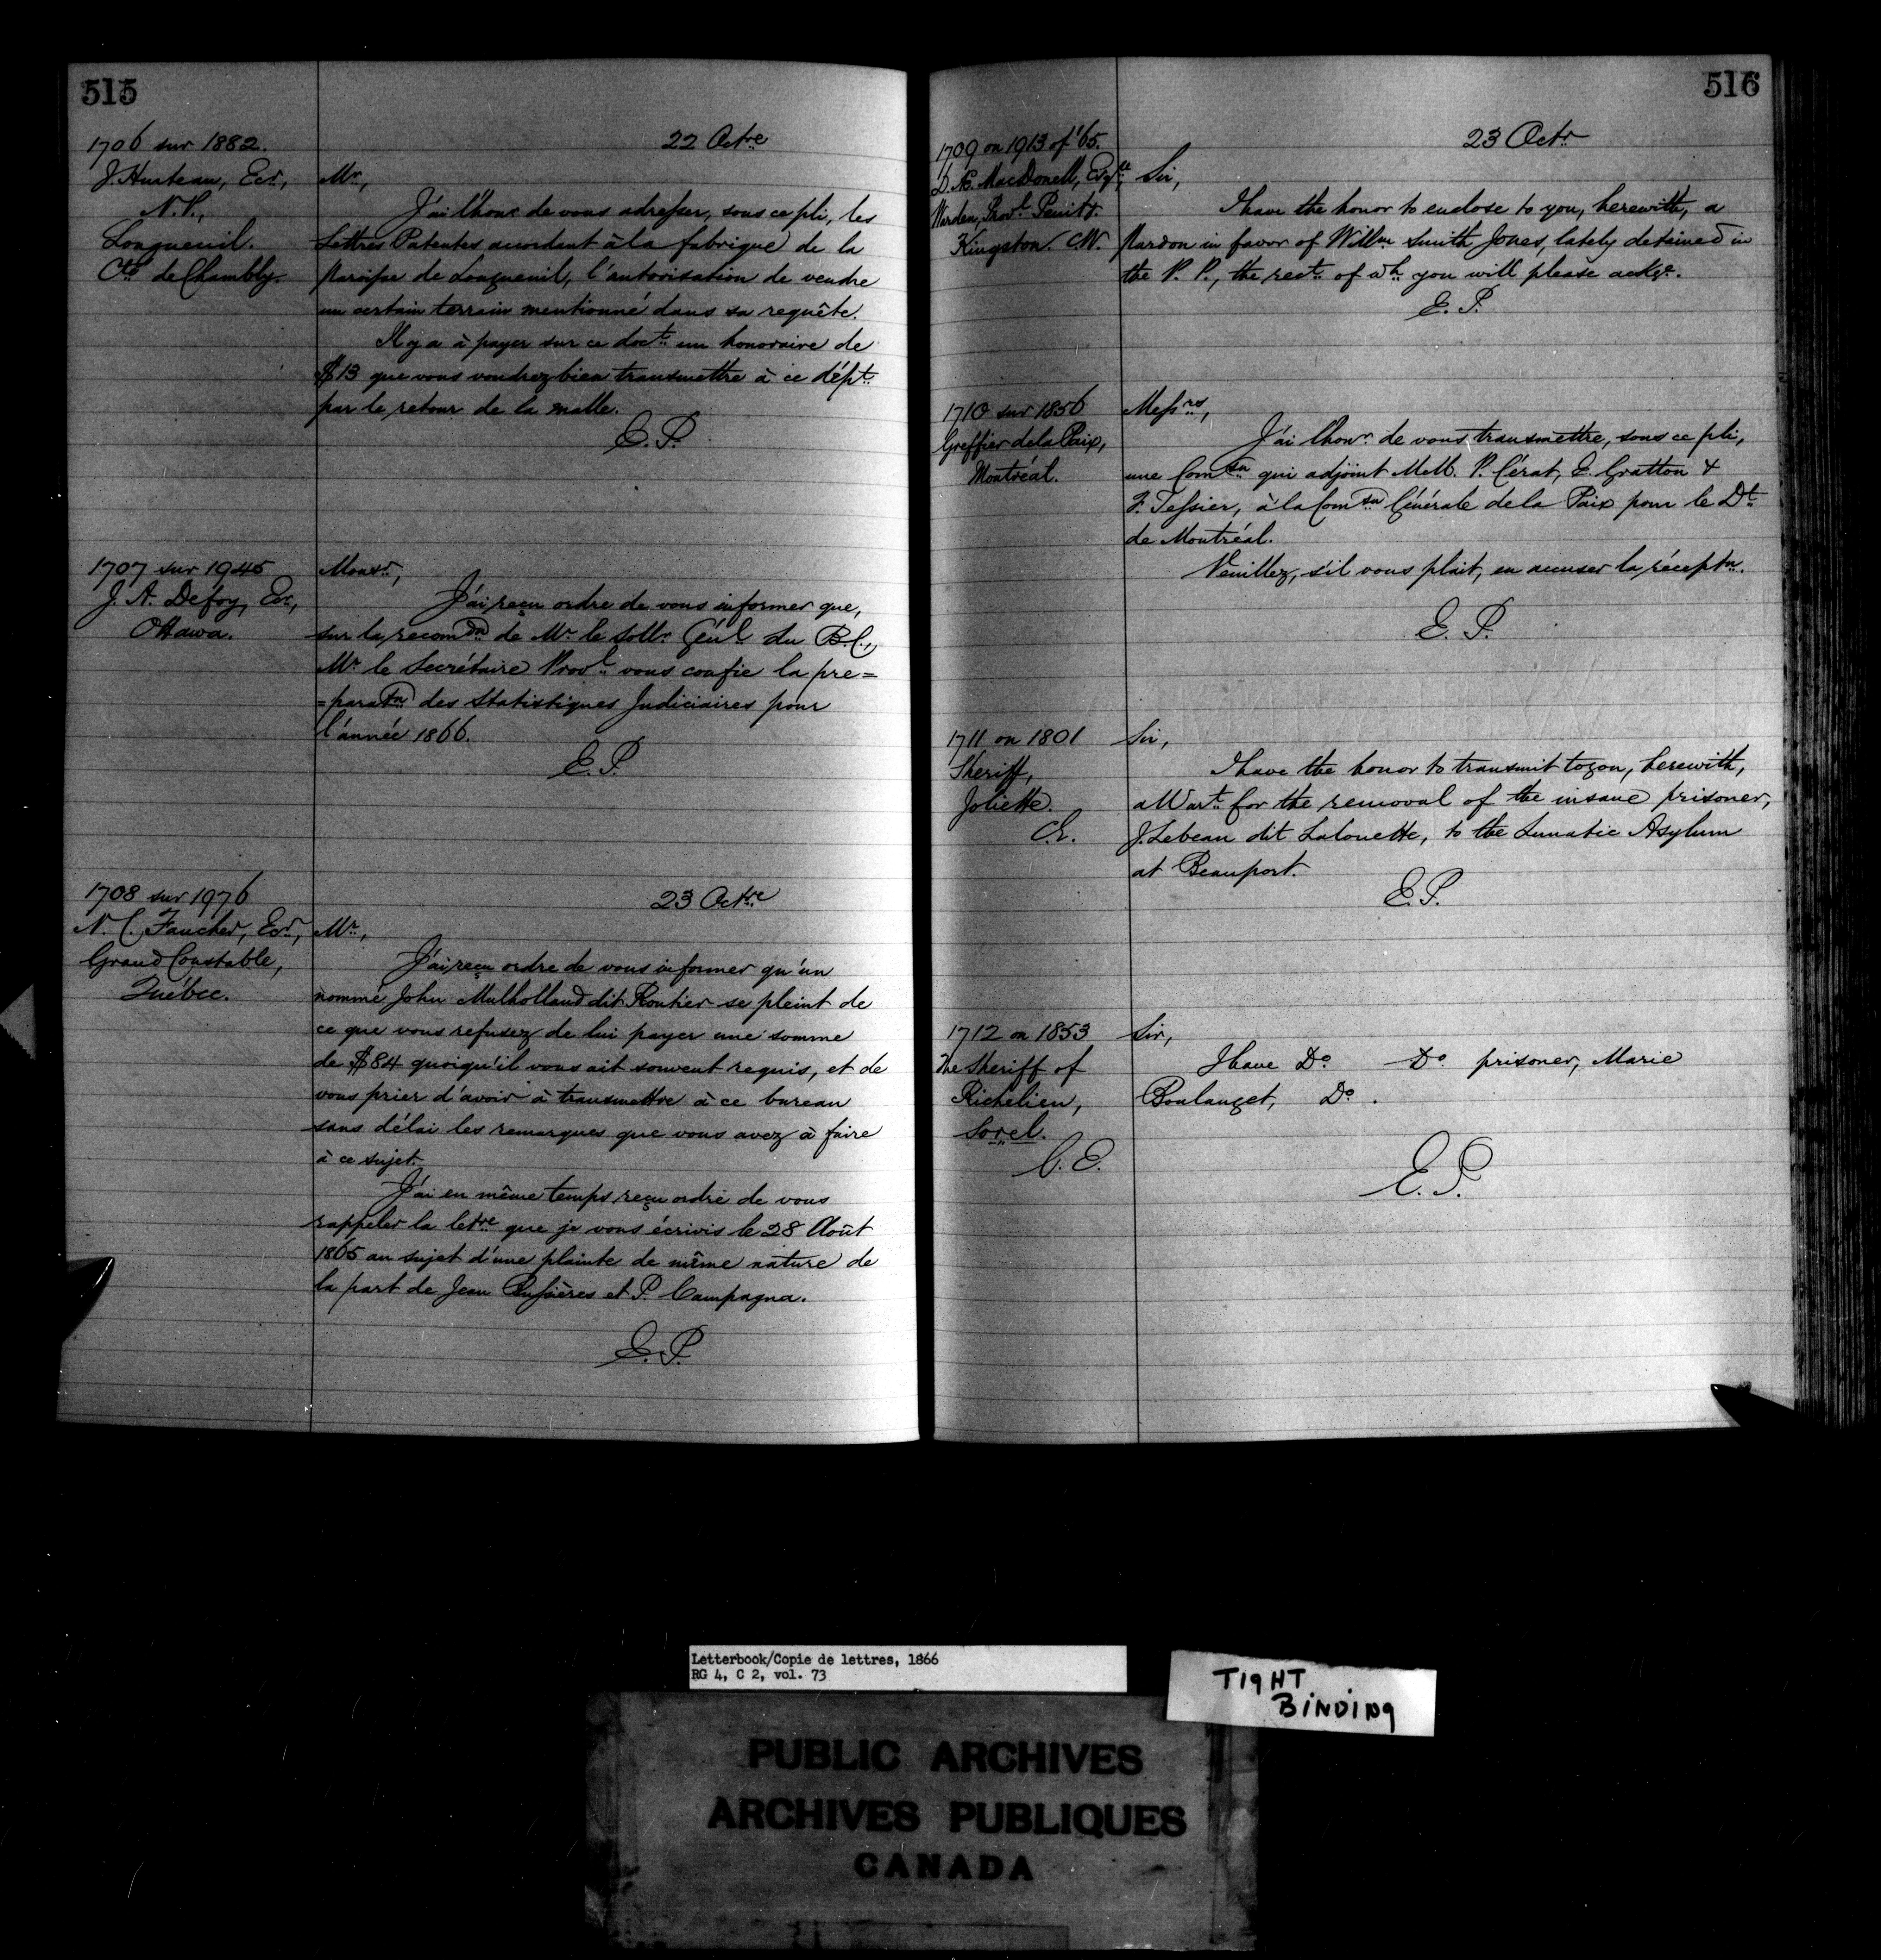 515
22 Octre
1706 sur 1882.
J. Hurteau, Ecr,
N.P.,
Longueuil.
Cté de Chambly.
Mr,
J'ai l'honr de vous adresser, sous ce pli, les
Lettres Patentes accordant à la fabrique de la
Paroisse de Longueuil, l'autorisation de vendre
un certain terrain mentionné dans sa requête.
Il y a à payer sur ce doct un honoraire de
$13 que vous voudrez bien transmettre à ce dépt
par le retour de la malle.
E. P.
1707 sur 1945
J. A. Defoy, Ecr,
Ottawa.
Monsr,
J'ai reçu ordre de vous informer que,
sur la recomdn de Mr le Sollr Génl du B.C.,
Mr le Secrétaire Provl vous confie la pre=
=paratn des Statistiques Judiciaires pour
l'année 1866.
E. P.
23 Octre
1708 sur 1976
N. C. Faucher, Ecr,
Grand Constable,
Québec.
Mr,
J'ai reçu ordre de vous informer qu'un
nommé John Mulholland dit Routier se pleint de
ce que vous refusez de lui payer une somme
de $84 quoiqu'il vous ait souvent requis, et de
vous prier d'avoir à transmettre à ce bureau
sans délai les remarques que vous avez à faire
à ce sujet.
J'ai en même temps reçu ordre de vous
rappeler la letre que je vous écrivis le 28 Août
1865 au sujet d'une plainte de même nature de
la part de Jean Bussières et P. Campagna.
E. P.
516
23 Octr
1709 on 1913 of '65.
D. Æ. MacDonell, Esqre,
Warden, Provl Penity.
Kingston. C.W.
Sir,
I have the honor to enclose to you, herewith, a
Pardon in favor of Willm Smith Jones, lately detained in
the P. P., the rect of wh you will please ackge.
E. P.
1710 sur 1856
Greffier de la Paix,
Montréal.
Messrs,
J'ai l'honr de vous transmettre, sous ce pli,
une Comsn qui adjoint MM. P. Cérat, E. Gratton &
F. Tessier, à la Comsn Générale de la Paix pour le Dt
de Montréal.
Veuillez, s'il vous plait, en accuser la réceptn.
E. P.
1711 on 1801
Sheriff,
Joliette.
C.E.
Sir,
I have the honor to transmit to you, herewith,
a Wart for the removal of the insane prisoner,
J. Lebeau dit Lalouette, to the Lunatic Asylum
at Beauport.
E. P.
1712 on 1853
The Sheriff of
Richelieu,
Sorel.
C. E.
Sir,
I have Do Do prisoner, Marie
Boulanget, Do.
E. P.
Letterbook/Copie de lettres, 1866
RG 4, C 2, vol. 73
TIGHT
BINDING
PUBLIC ARCHIVES
ARCHIVES PUBLIQUES
CANADA